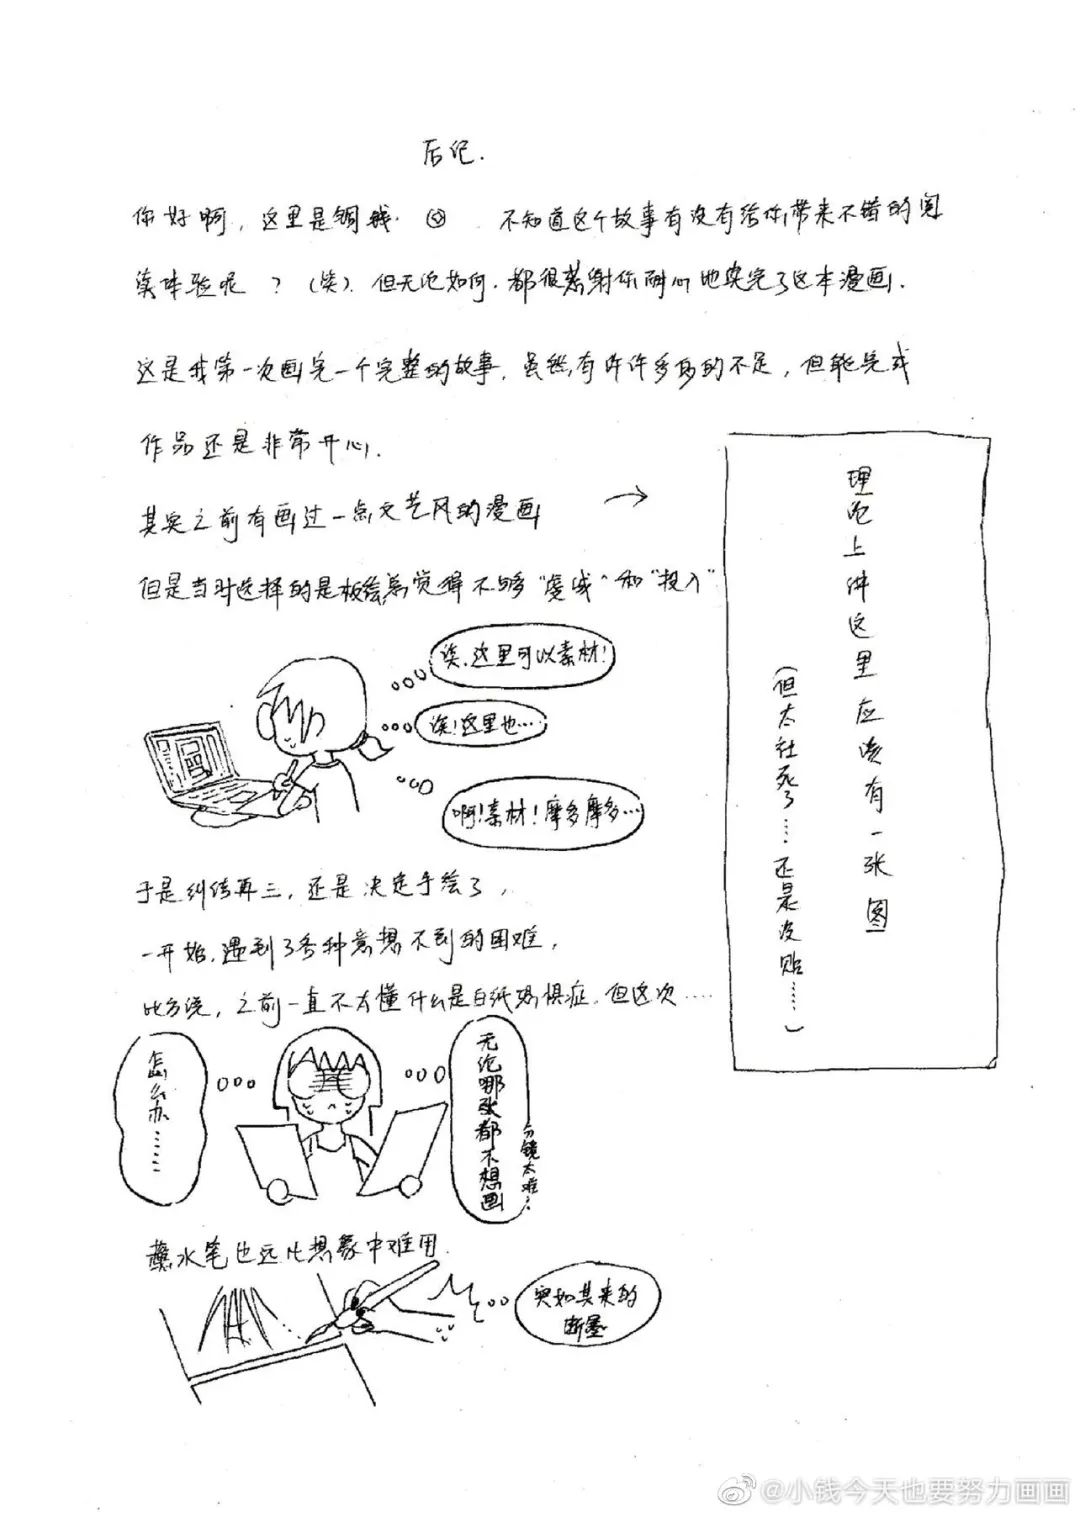 后记.
你好啊,这里是铜钱. 不知道这个故事有没有给你带来不错的阅
读体验呢?(笑).但无论如何.都很感谢你耐心地读完了这本漫画.
这是我第一次画完一个完整的故事.虽然有许许多多的不足,但能完成
作品还是非常开心.
其实之前有画过一点文艺风的漫画
→
但是当时选择的是板绘,总觉得不够“虔诚”和“投入”
理论上讲这里应该有一张图
(但太社死了....还是没贴......)
诶.这里可以素材!
诶!这里也…
啊!素材!摩多摩多…
于是纠结再三,还是决定手绘了,
一开始,遇到了各种意想不到的困难,
比方说,之前一直不太懂什么是白纸恐惧症.但这次……
怎么办……
无论哪张都不想画
分镜太难..
蘸水笔也远比想象中难用.
突如其来的
断墨
@小钱今天也要努力画画